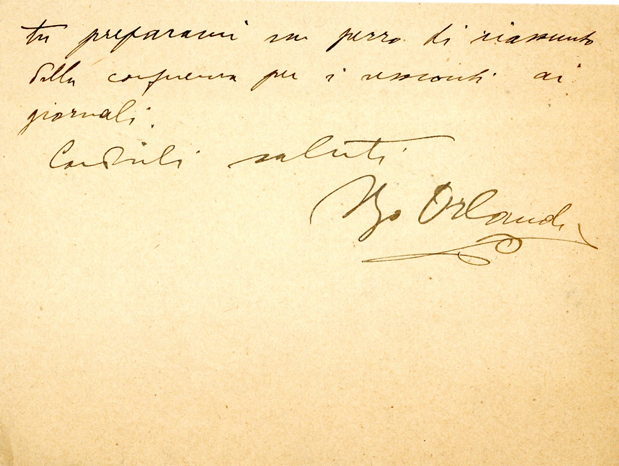 tu prepararmi un pezzo di riassunto
della conferenza per i resoconti ai
giornali.
Cordiali saluti
Ugo Orlandi